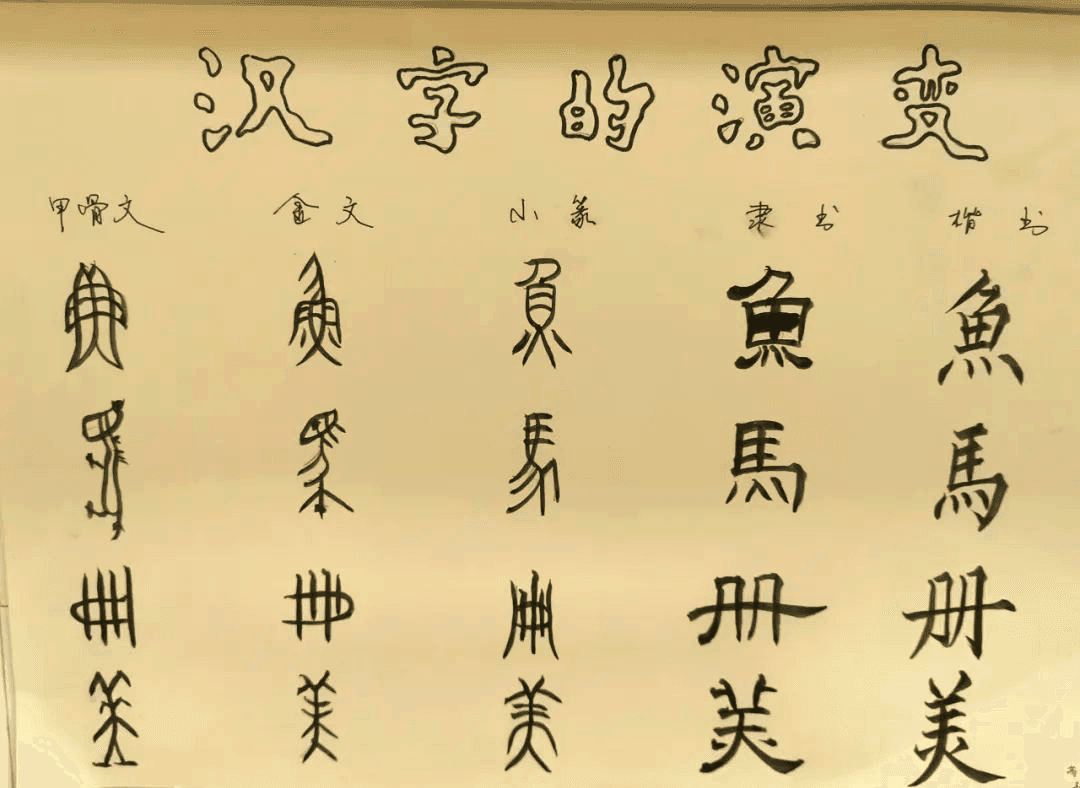 汉字的演变
甲骨文 金文 小篆 隶书 楷书
魚 魚 魚 魚 魚
馬 馬 馬 馬 馬
册 册 册 册 册
美 美 美 美 美